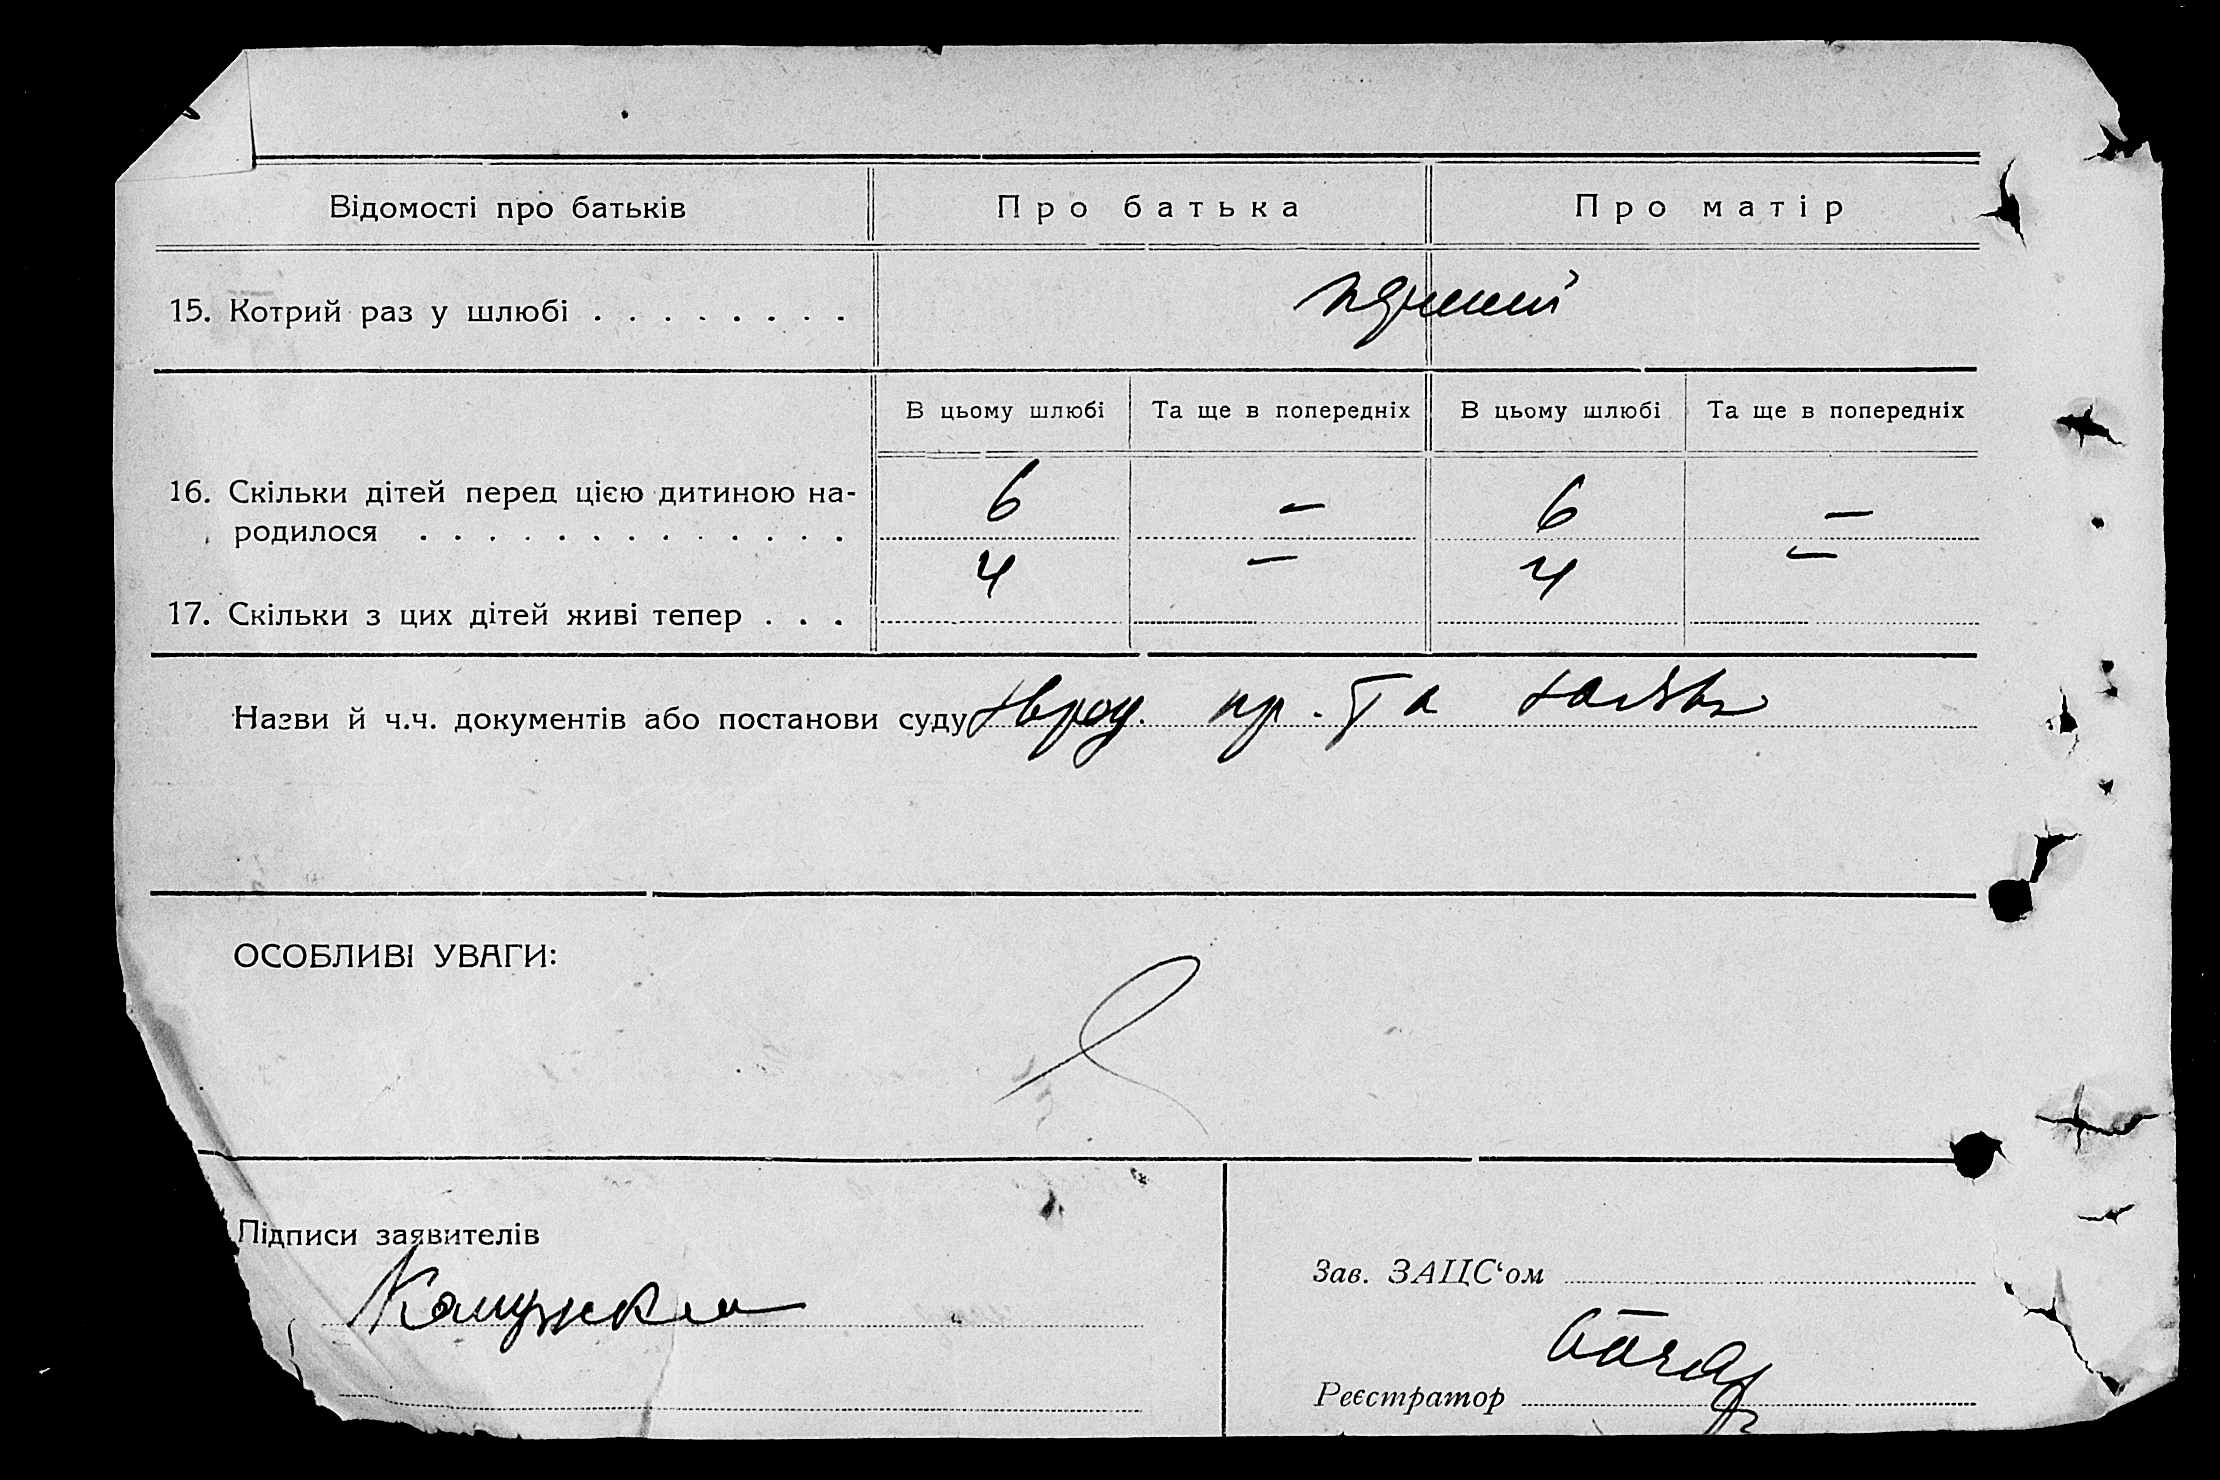 Відомості про батьків Про батька Про матір
15. Котрий раз у шлюбі . . . . . . . .
В цьому шлюбі Та ще в попередніх В цьому шлюбі Та ще в попередніх
16. Скільки дітей перед цією дитиною на- 6 – 6 –
родилося . . . . . . . . . . . . .
17. Скільки з цих дітей живі тепер . . . 4 – 4 –
Назви й ч.ч. документів або постанови суду пр. та
ОСОБЛИВІ УВАГИ:
Підписи заявителів
Зав. ЗАЦС‘ом
Реєстратор